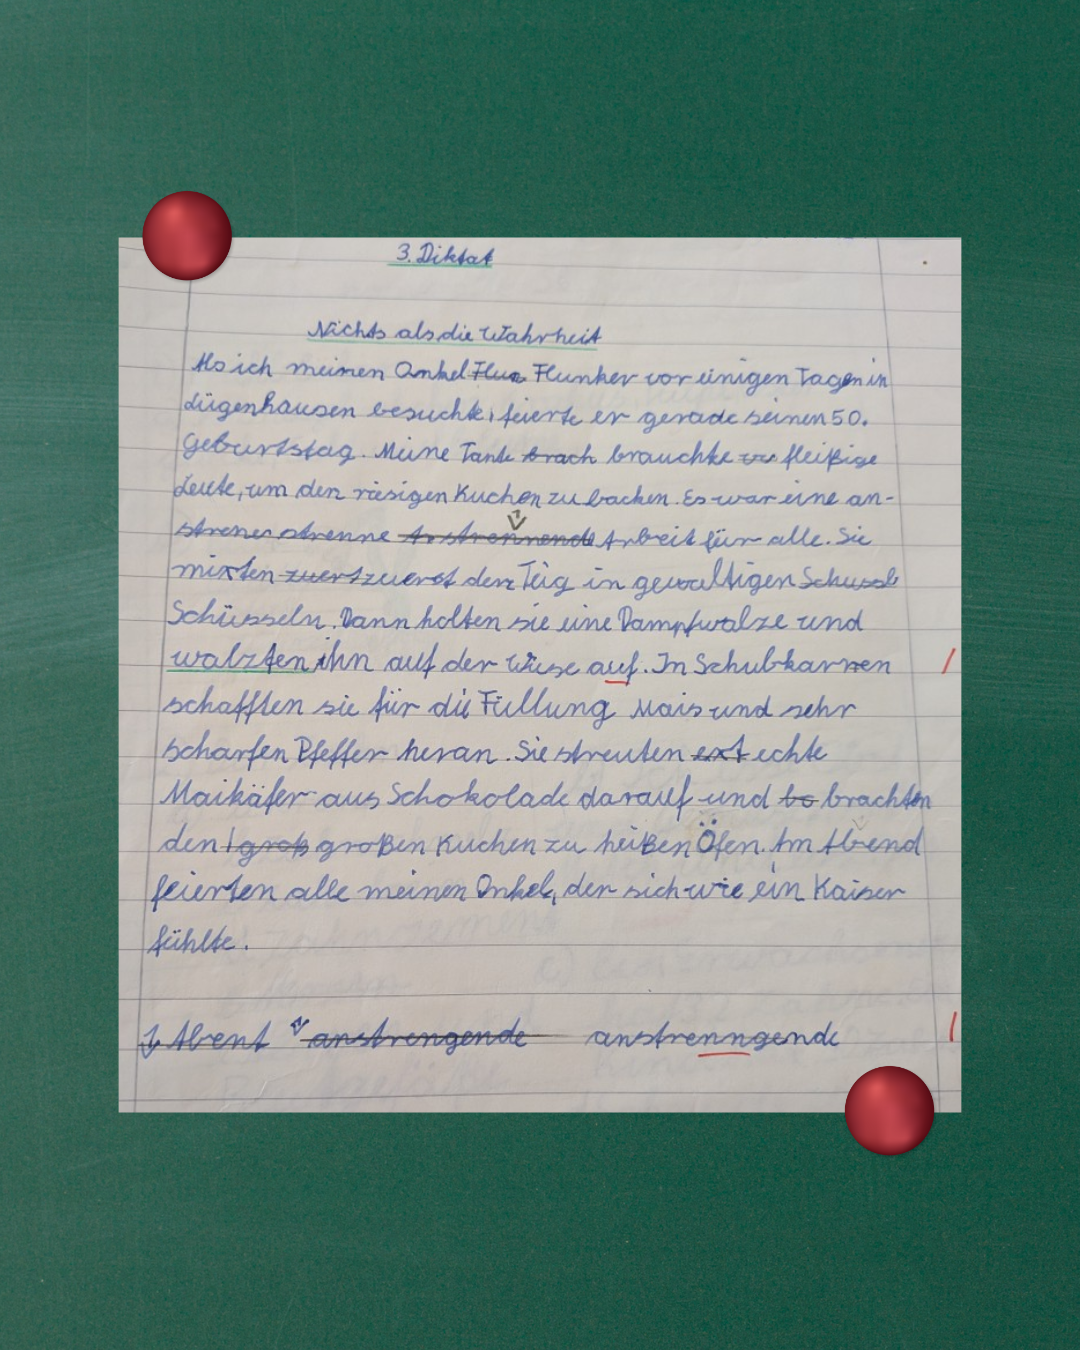 3. Diktat
Nichts als die Wahrheit
Als ich meinen Onkel Flun Flunker vor einigen Tagen in
Lügenhausen besuchte, feierte er gerade seinen 50.
Geburtstag. Meine Tante brach brauchte fleißige
Leute, um den riesigen Kuchen zu backen. Es war eine an-
strener strenne Anstrennende Arbeit für alle. Sie
mixten zuertzuerst den Teig in gewaltigen Schussel
Schüsseln. Dann holten sie eine Dampfwalze und
walzten ihn auf der Wiese auf. In Schubkarren
schafften sie für die Füllung Mais und sehr
scharfen Pfeffer heran. Sie streuten ext echte
Maikäfer aus Schokolade darauf und bo brachten
den groß großen Kuchen zu heißen Öfen. Am Abend
feierten alle meinen Onkel, der sich wie ein Kaiser
fühlte.
Abent anstrengende anstrenngende